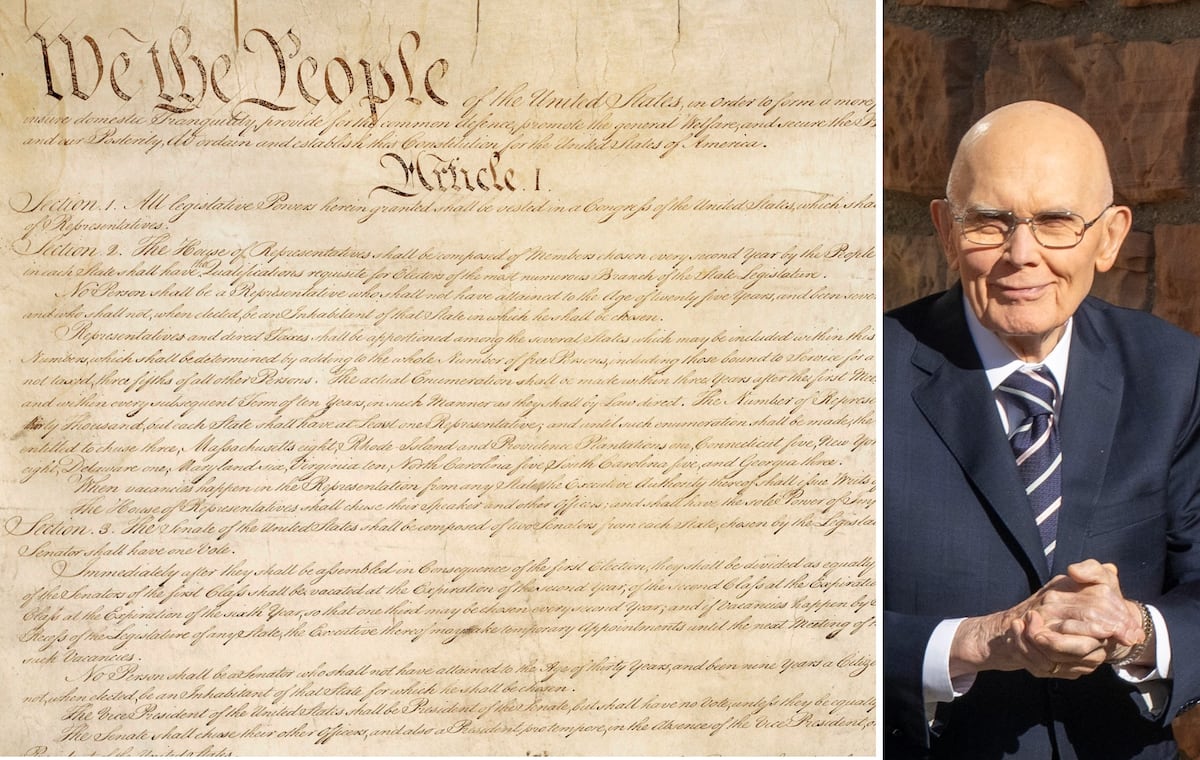 We the People of the United States, in Order to form a more
insure domestic Tranquility, provide for the common defence, promote the general Welfare, and secure the
and our Posterity, do ordain and establish this Constitution for the United States of America.
Article. I.
Section. 1. All legislative Powers herein granted shall be vested in a Congress of the United States, which shall
of Representatives.
Section. 2. The House of Representatives shall be composed of Members chosen every second Year by the People
in each State shall have Qualifications requisite for Electors of the most numerous Branch of the State Legislature.
No Person shall be a Representative who shall not have attained to the Age of twenty five Years, and been seven
and who shall not, when elected, be an Inhabitant of that State in which he shall be chosen.
Representatives and direct Taxes shall be apportioned among the several States which may be included within this
Numbers, which shall be determined by adding to the whole Number of free Persons, including those bound to Service for a
not taxed, three fifths of all other Persons. The actual Enumeration shall be made within three Years after the first Mee
and within every subsequent Term of ten Years, in such Manner as they shall by Law direct. The Number of Represe
thirty Thousand, but each State shall have at Least one Representative; and until such enumeration shall be made, the
entitled to chuse three, Massachusetts eight, Rhode Island and Providence Plantations one, Connecticut five, New Yor
eight, Delaware one, Maryland six, Virginia ten, North Carolina five, South Carolina five, and Georgia three.
When vacancies happen in the Representation from any State, the Executive Authority thereof shall issue Writs of
The House of Representatives shall chuse their Speaker and other Officers; and shall have the sole Power of Imp
Section. 3. The Senate of the United States shall be composed of two Senators from each State, chosen by the Legisla
Senator shall have one Vote.
Immediately after they shall be assembled in Consequence of the first Election, they shall be divided as equally
of the Senators of the first Class shall be vacated at the Expiration of the second Year, of the second Class at the Expiratio
Class at the Expiration of the sixth Year, so that one third may be chosen every second Year; and if Vacancies happen by
Recess of the Legislature of any State, the Executive thereof may make temporary Appointments until the next Meeting of
such Vacancies.
No Person shall be a Senator who shall not have attained to the Age of thirty Years, and been nine Years a Citize
not, when elected, be an Inhabitant of that State for which he shall be chosen.
The Vice President of the United States shall be President of the Senate, but shall have no Vote, unless they be equally
The Senate shall chuse their other Officers, and also a President pro tempore, in the Absence of the Vice President, o
President of the United States.